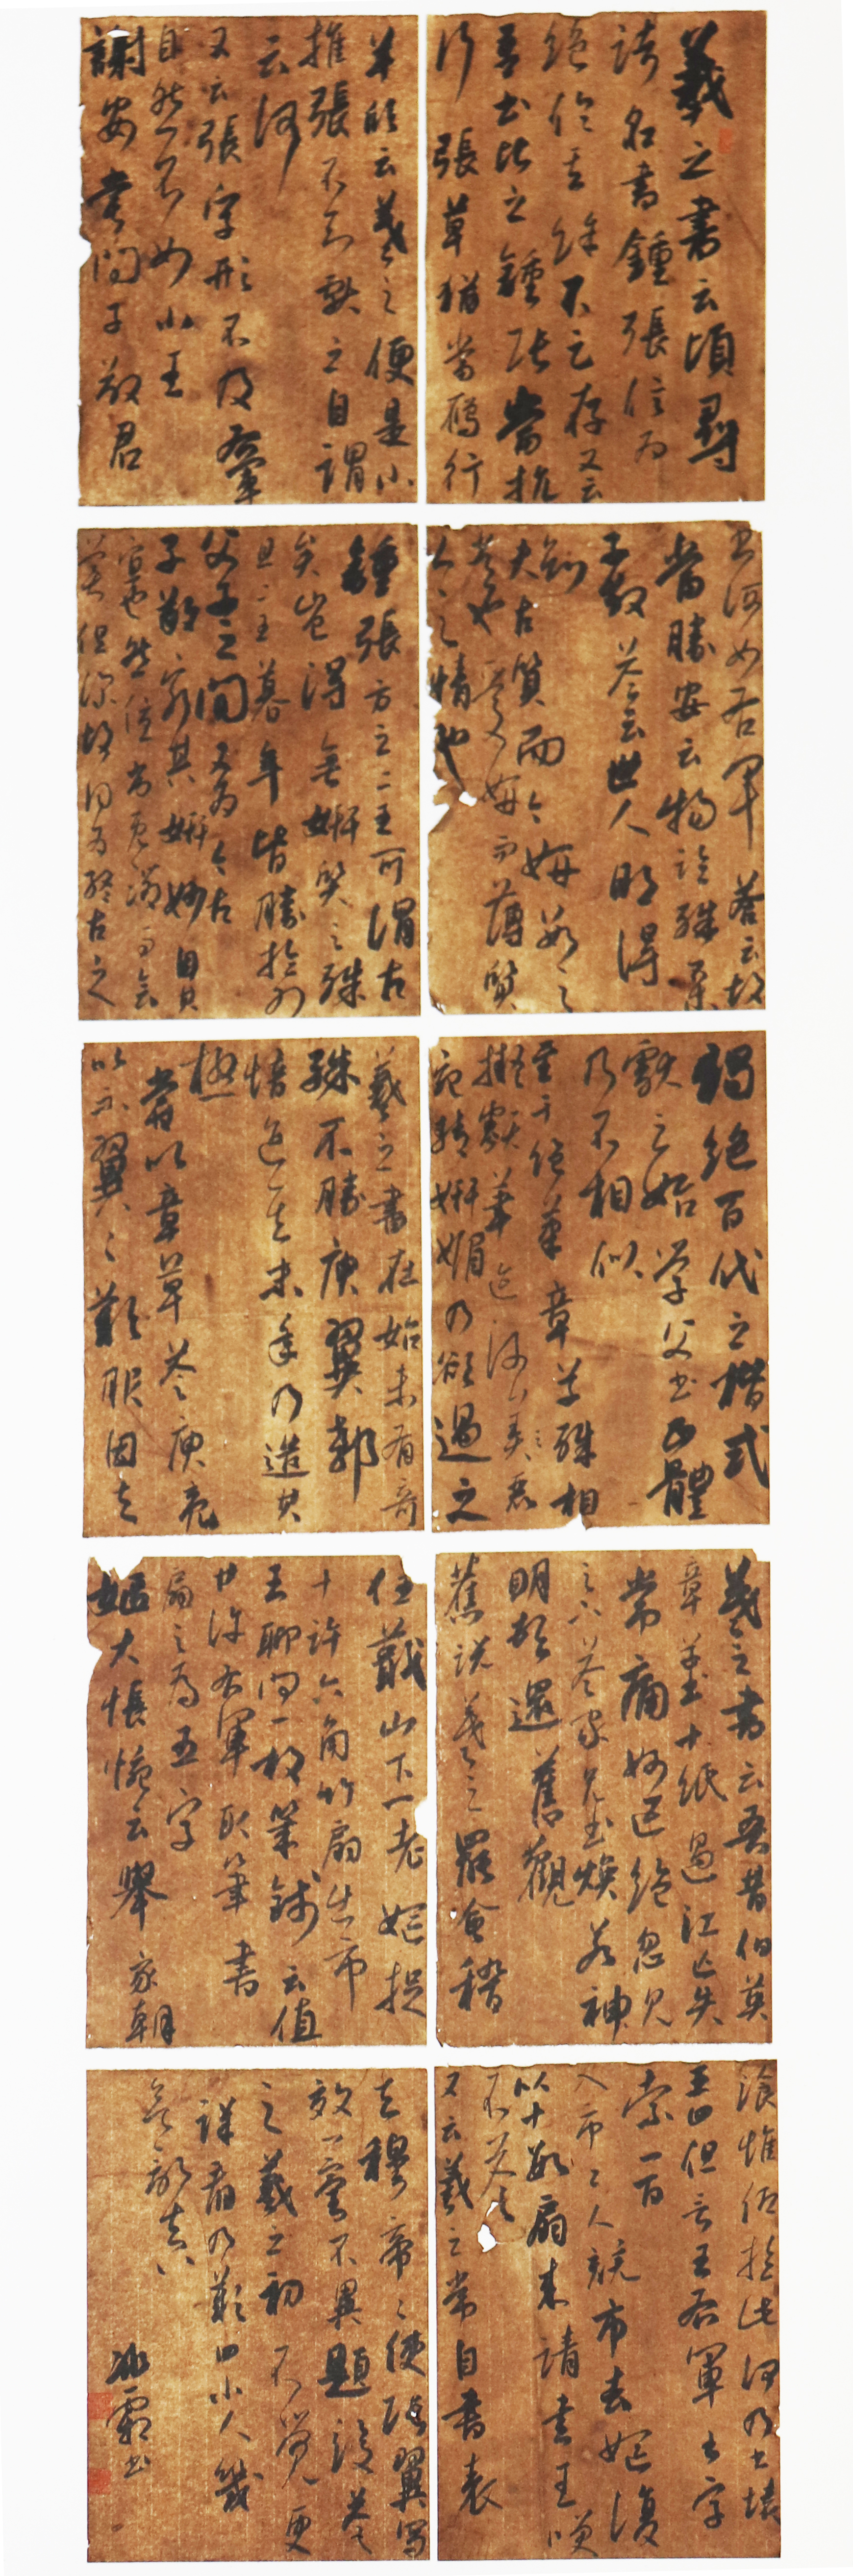 羲之書云頃尋
諸名書鍾張信為
絕倫其餘不足存又云
吾書比之鍾張當抗
行張草猶當雁行
羊欣云羲之便是小
推張不知獻之自謂
云何
又云張字形不及右軍
自然不如小王
謝安嘗問子敬君
書何如右軍答云故
當勝安云物論殊不
子敬答云世人那得
知
夫古質而今妍數之
常也愛妍而薄質
人之情也
鍾張方之二王可謂古
矣豈得無妍質之殊
且二王暮年皆勝於少
父子之間又為今古
子敬窮其妍妙固其
宜也然優劣既微而會
美俱深故同為終古之
獨絕百代之楷式
獻之始學父書正體
乃不相似
至于絕筆章草殊相
擬類筆迹流美
宛轉妍媚乃欲過之
羲之書在始未有奇
殊不勝庾翼郗
愔迨其末年乃造其
極
嘗以章草答庾亮
以示翼翼歎服因与
羲之書云吾昔伯英
章草書十紙過江亡失
常痛妙迹絕忽見
足下答家兄書煥若神
明頓還舊觀
舊說羲之罷會稽
住蕺山下一老嫗捉
十許六角竹扇出市
王聊問一枚幾錢云值
廿許右軍取筆書
扇之為五字
嫗大悵惋云舉家朝
飡惟仰於此何乃書壞
王曰但言王右軍書字
索一百
入市市人競市去嫗復
以十數扇來請書王笑
不答
又云羲之常自書表
与穆帝帝使張翼寫
效一毫不異題後答
之羲之初不覺更
詳看乃歎曰小人幾
欲亂真
冰霜書